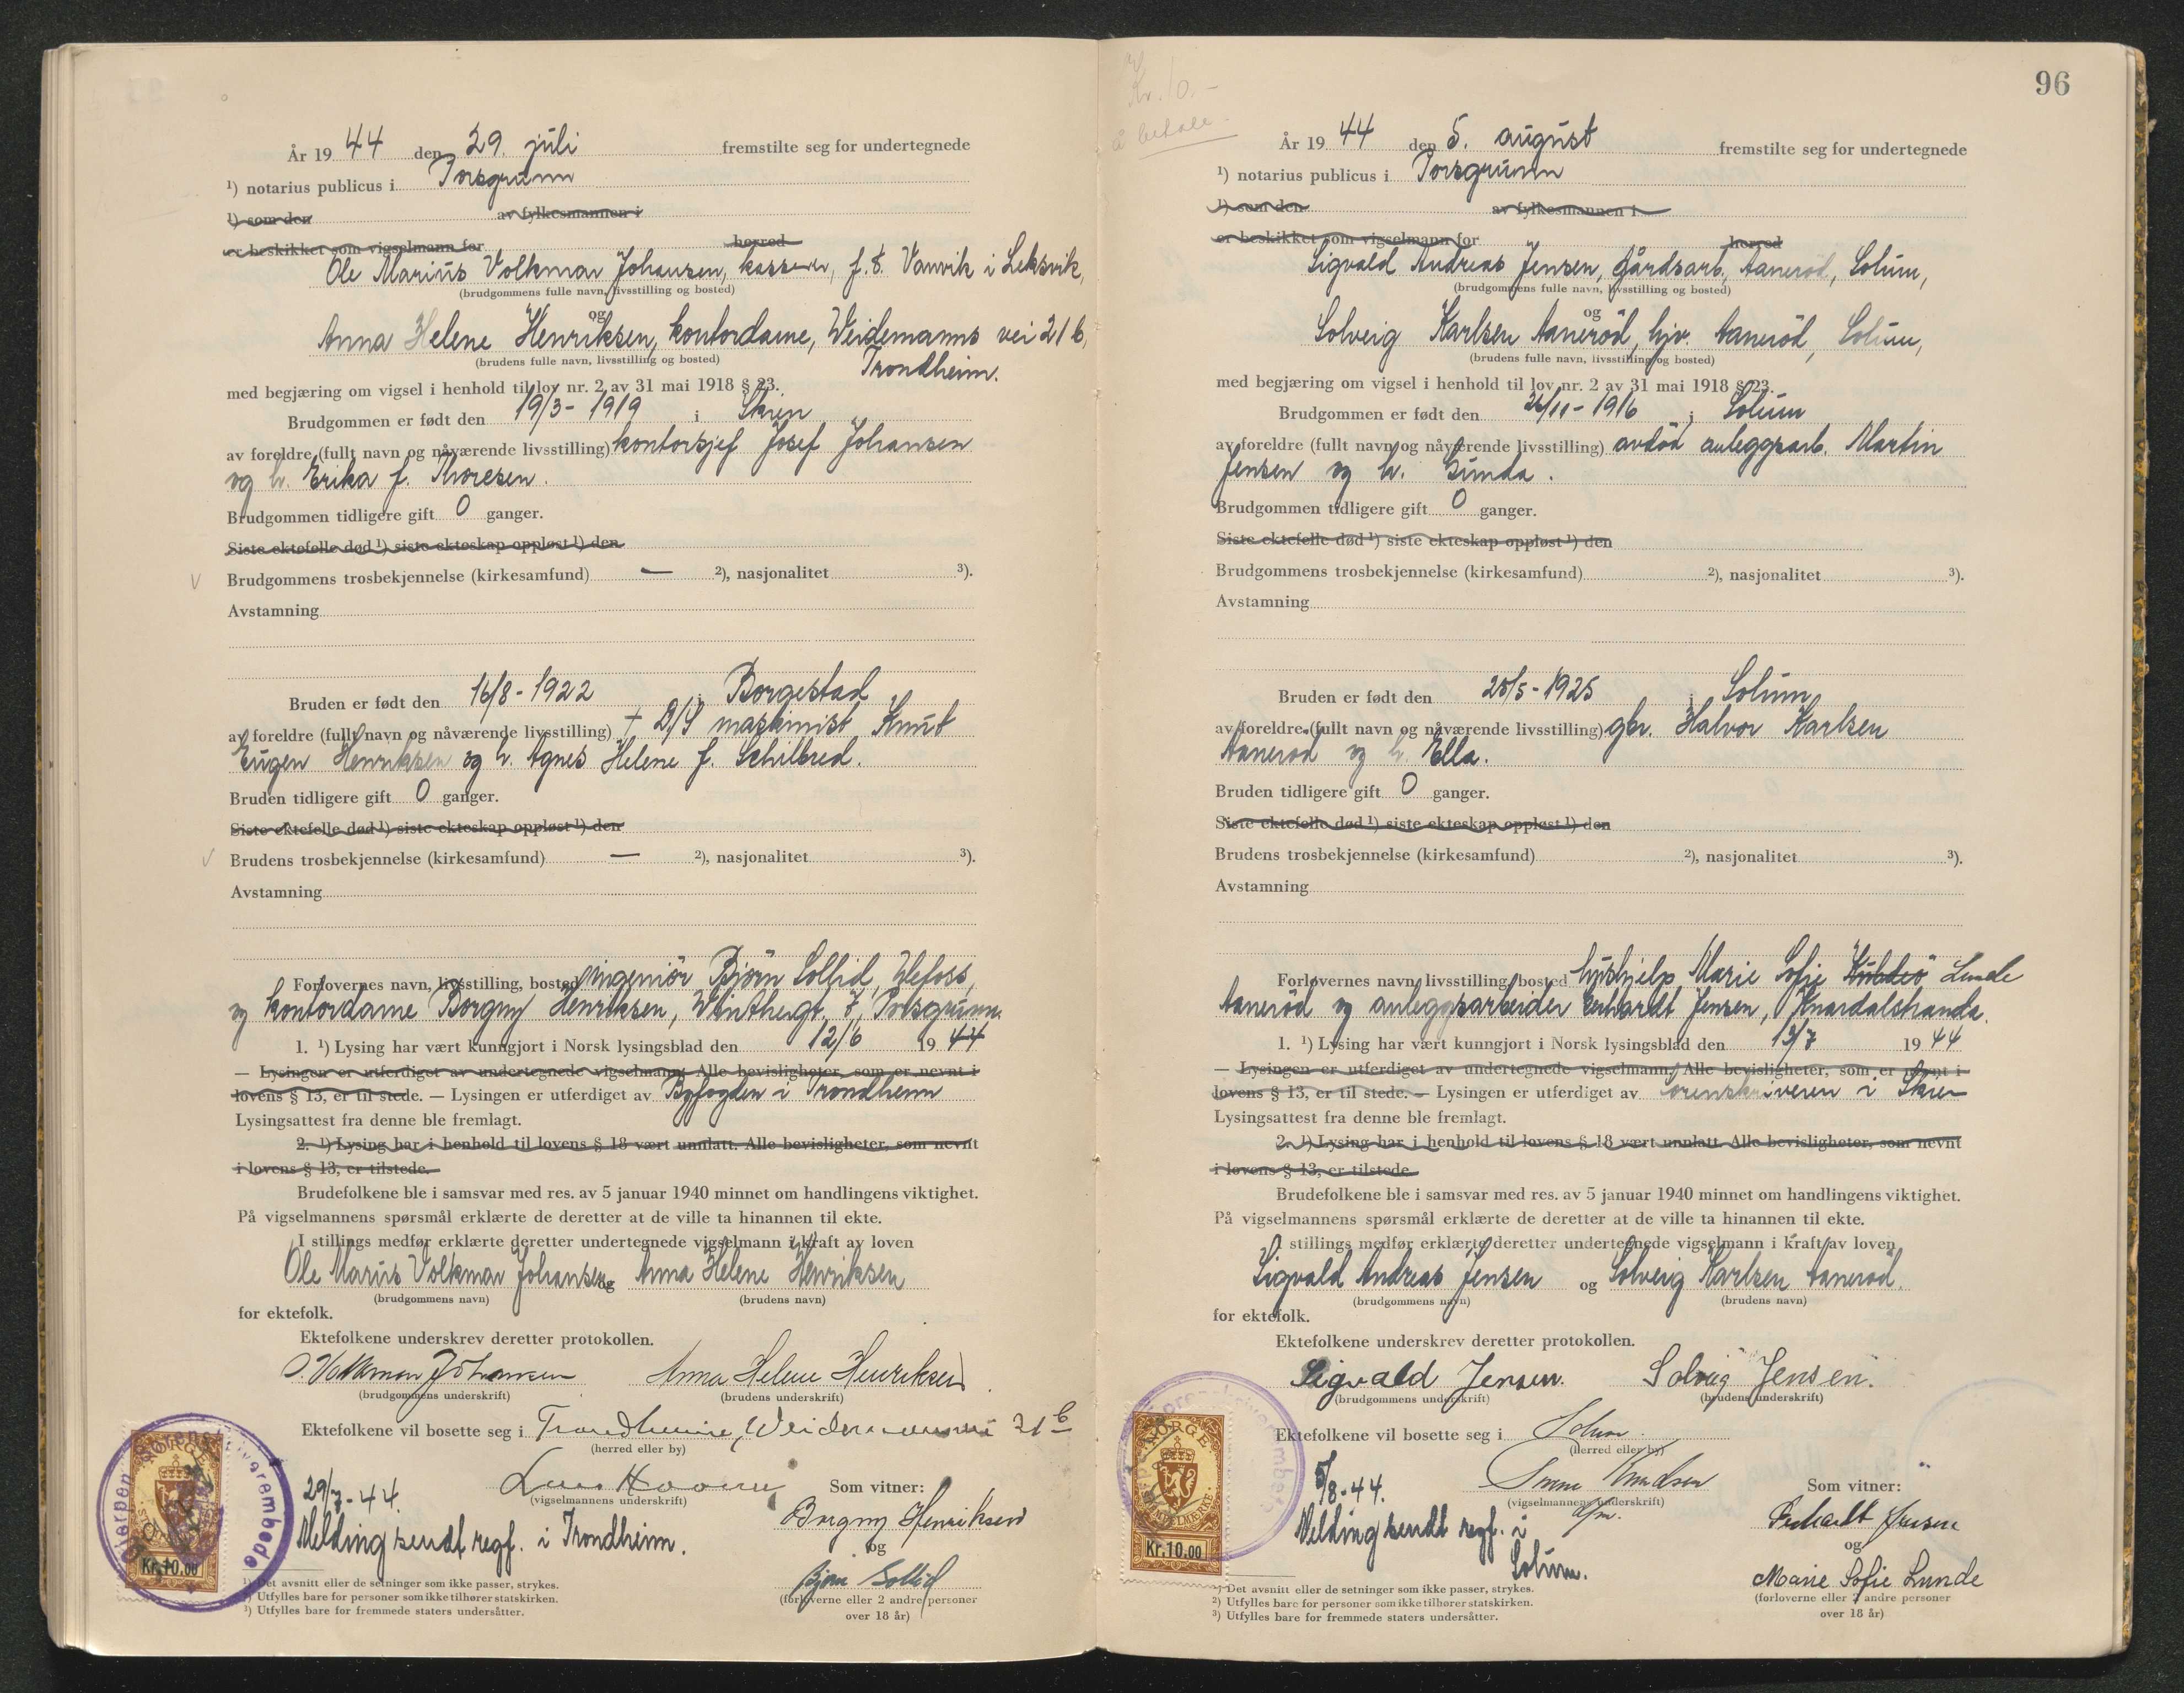 År 19 44 den 29. juli fremstilte seg for undertegnede
¹) notarius publicus i Porsgrunn
¹) som den av fylkesmannen i
er beskikket som vigselmann for herred
Ole Marius Volkmar Johansen, kasserer, f. t. Vanvik i Leksvik,
(brudgommens fulle navn, livsstilling og bosted)
og
Anna Helene Henriksen, kontordame, Weidemanns vei 21 b,
(brudens fulle navn, livsstilling og bosted)
Trondheim.
med begjæring om vigsel i henhold til lov nr. 2 av 31 mai 1918 § 23.
Brudgommen er født den 19/3 - 1919 i Skien
av foreldre (fullt navn og nåværende livsstilling) kontorsjef Josef Johansen
og h. Erika f. Thoresen.
Brudgommen tidligere gift 0 ganger.
Siste ektefelle død ¹) siste ekteskap oppløst ¹) den
Brudgommens trosbekjennelse (kirkesamfund) — ²), nasjonalitet ³).
Avstamning
Bruden er født den 16/8 - 1922 i Borgestad
av foreldre (fullt navn og nåværende livsstilling) + D/S maskinist Knut
Eugen Henriksen og h. Agnes Helene f. Schilbred.
Bruden tidligere gift 0 ganger.
Siste ektefelle død ¹) siste ekteskap oppløst ¹) den
Brudens trosbekjennelse (kirkesamfund) — ²), nasjonalitet ³).
Avstamning
Forlovernes navn, livsstilling, bosted ingeniör Björn Sollid, Ulefoss,
og kontordame Borgny Henriksen, Winthergt. 7, Porsgrunn.
1. ¹) Lysing har vært kunngjort i Norsk lysingsblad den 12/6 19 44
— Lysingen er utferdiget av undertegnede vigselmann. Alle bevisligheter, som er nevnt i
lovens § 13, er til stede. — Lysingen er utferdiget av Byfogden i Trondheim
Lysingsattest fra denne ble fremlagt.
2. ¹) Lysing har i henhold til lovens § 18 vært unnlatt. Alle bevisligheter, som nevnt
i lovens § 13, er tilstede.
Brudefolkene ble i samsvar med res. av 5 januar 1940 minnet om handlingens viktighet.
På vigselmannens spørsmål erklærte de deretter at de ville ta hinannen til ekte.
I stillings medfør erklærte deretter undertegnede vigselmann i kraft av loven
Ole Marius Volkmar Johansen og Anna Helene Henriksen
(brudgommens navn) (brudens navn)
for ektefolk.
Ektefolkene underskrev deretter protokollen.
O. Volkmar Johansen Anna Helene Henriksen
(brudgommens underskrift) (brudens underskrift)
Ektefolkene vil bosette seg i Trondheim, 21 b
(herred eller by)
29/7 - 44.
(vigselmannens underskrift)
Som vitner:
Melding sendt regf. i Trondheim.
Borgny Henriksen
og
Bjørn Sollid
(forloverne eller 2 andre personer
over 18 år)
NORGE
Kr. 10.00
¹) Det avsnitt eller de setninger som ikke passer, strykes.
²) Utfylles bare for personer som ikke tilhører statskirken.
³) Utfylles bare for fremmede staters undersåtter.
96
Kr. 10.-
å betale.
År 19 44 den 5. august fremstilte seg for undertegnede
¹) notarius publicus i Porsgrunn
¹) som den av fylkesmannen i
er beskikket som vigselmann for herred
Sigvald Andreas Jensen, gårdsarb., Aanerød, Solum,
(brudgommens fulle navn, livsstilling og bosted)
og
Solveig Karlsen Aanerød, hjv. Aanerød, Solum,
(brudens fulle navn, livsstilling og bosted)
med begjæring om vigsel i henhold til lov nr. 2 av 31 mai 1918 § 23.
Brudgommen er født den 26/11 - 1916 i Solum
av foreldre (fullt navn og nåværende livsstilling) avdöd anleggsarb. Martin
Jensen og h. Gunda.
Brudgommen tidligere gift 0 ganger.
Siste ektefelle død ¹) siste ekteskap oppløst ¹) den
Brudgommens trosbekjennelse (kirkesamfund) ²), nasjonalitet ³).
Avstamning
Bruden er født den 28/5 - 1925 i Solum
av foreldre (fullt navn og nåværende livsstilling) gbr. Halvor Karlsen
Aanerød og h. Ella.
Bruden tidligere gift 0 ganger.
Siste ektefelle død ¹) siste ekteskap oppløst ¹) den
Brudens trosbekjennelse (kirkesamfund) ²), nasjonalitet ³).
Avstamning
Forlovernes navn, livsstilling, bosted hushjelp Marie Sofie Lunde
Aanerød og anleggsarbeider Erhardt Jensen, Knardalstranda.
1. ¹) Lysing har vært kunngjort i Norsk lysingsblad den 13/7 19 44
— Lysingen er utferdiget av undertegnede vigselmann. Alle bevisligheter, som er nevnt i
lovens § 13, er til stede. — Lysingen er utferdiget av sorenskriveren i Skien
Lysingsattest fra denne ble fremlagt.
2. ¹) Lysing har i henhold til lovens § 18 vært unnlatt. Alle bevisligheter, som nevnt
i lovens § 13, er tilstede.
Brudefolkene ble i samsvar med res. av 5 januar 1940 minnet om handlingens viktighet.
På vigselmannens spørsmål erklærte de deretter at de ville ta hinannen til ekte.
I stillings medfør erklærte deretter undertegnede vigselmann i kraft av loven
Sigvald Andreas Jensen og Solveig Karlsen Aanerød.
(brudgommens navn) (brudens navn)
for ektefolk.
Ektefolkene underskrev deretter protokollen.
Sigvald Jensen. Solveig Jensen.
(brudgommens underskrift) (brudens underskrift)
Ektefolkene vil bosette seg i Solum.
(herred eller by)
5/8 - 44. Knudsen
(vigselmannens underskrift)
Som vitner:
Melding sendt regf. i
Solum.
Erhardt Jensen
og
Marie Sofie Lunde
(forloverne eller 2 andre personer
over 18 år)
NORGE
Kr. 10.00
¹) Det avsnitt eller de setninger som ikke passer, strykes.
²) Utfylles bare for personer som ikke tilhører statskirken.
³) Utfylles bare for fremmede staters undersåtter.